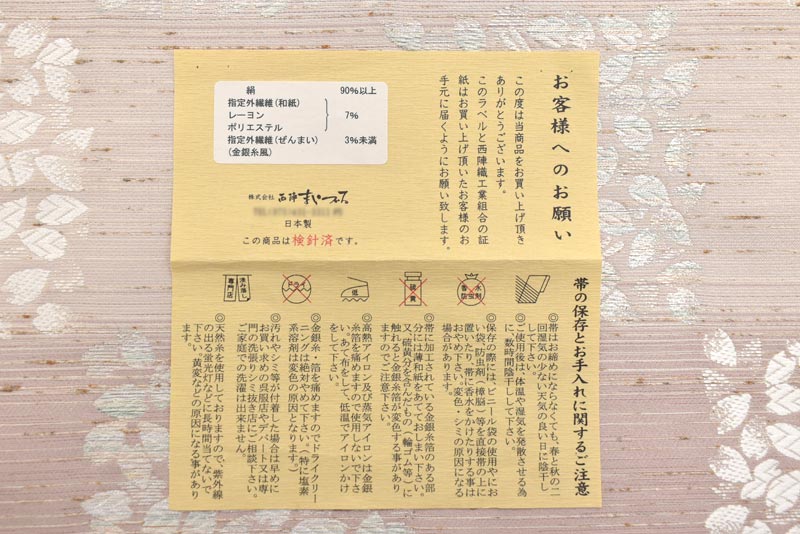 お客様へのお願い
この度は当商品をお買い上げ頂き
ありがとうございます。
このラベルと西陣織工業組合の証
紙はお買い上げ頂いたお客様のお
手元に届くようにお願い致します。
絹 90%以上
指定外繊維(和紙)
レーヨン 7%
ポリエステル
指定外繊維(ぜんまい) 3%未満
(金銀糸風)
株式会社 西陣まいづる
日本製
この商品は検針済です。
帯の保存とお手入れに関するご注意
香水
防虫剤
硫黄
低
ドライ
染み落し
専門店
◎帯はお締めにならなくても、春と秋の二
回湿気の少ない天気の良い日に陰干し
して下さい。
◎ご使用後は、体温や湿気を発散させる為
に、数時間陰干しして下さい。
◎保存の際には、ビニール袋の使用やにお
い袋、防虫剤(樟脳)等を直接帯の上に
置いたり、帯に香水をかけたりする事は
おやめ下さい。変色・シミの原因になる
場合があります。
◎帯に加工されている金銀糸箔のある部
分には薄和紙をあてておしまい下さい。
又、硫黄分をふくんだもの(輪ゴム等)に
触れると金銀糸箔が変色する事があり
ますのでご注意下さい。
◎高熱アイロン及び蒸気アイロンは金銀
糸箔を痛めますので使用しないで下さ
い。あて布をして、低温でアイロンかけ
をして下さい。
◎金銀糸・箔を痛めますのでドライクリー
ニングは絶対やめて下さい。(特に塩素
系溶剤は変色の原因となります。)
◎汚れやシミ等が付着した場合は早めに
お買い求めの呉服店やデパート又は専
門の洗張りシミ抜き店にご相談下さい。
ご家庭での洗濯は出来ません。
◎天然糸を使用しておりますので、紫外線
の出る蛍光灯などに長時間当てないで
下さい。黄変などの原因になる事があり
ます。